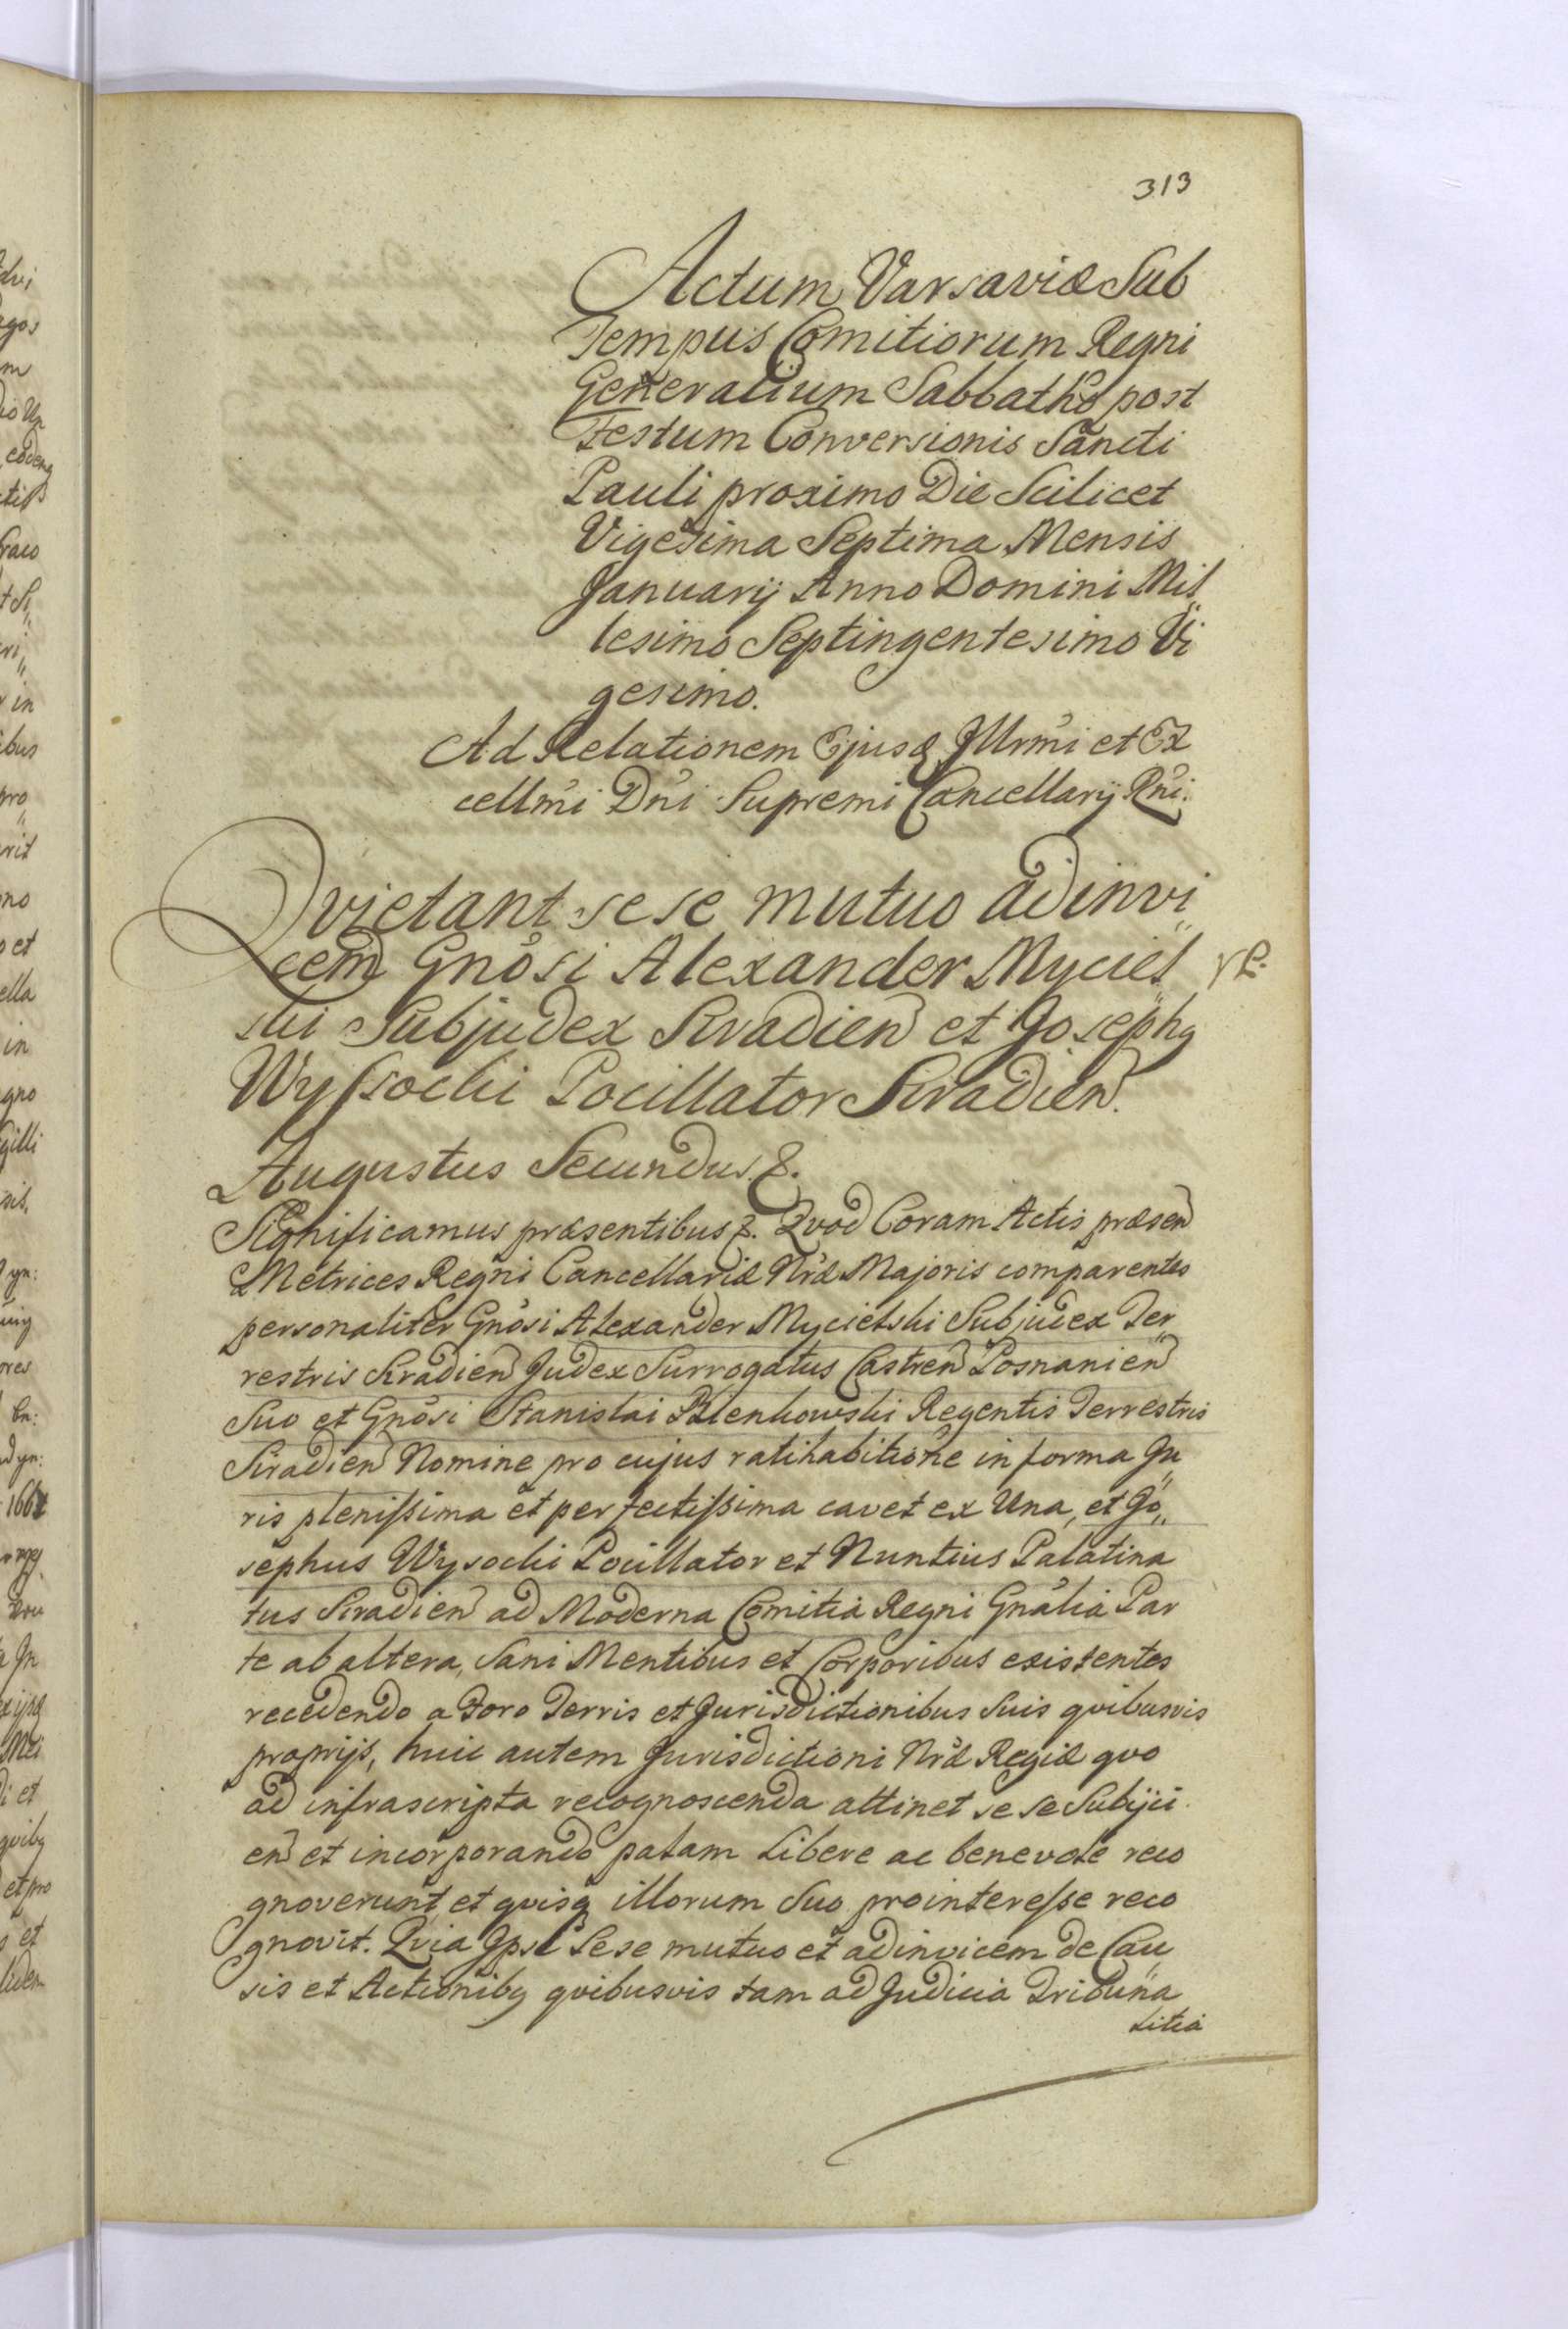 313
Actum Varsaviæ Sub
Tempus Comitiorum Regni
Generalium Sabbatho post
Festum Conversionis Sancti
Pauli proximo Die Scilicet
Vigesima Septima Mensis
Januarij Anno Domini Mil„
lesimo Septingentesimo Vi
gesimo.
Ad Relationem Ejusd Illrmi et Ex
cellmi Dni Supremi Cancellarij Rni.
Qvietant sese mutuo adinvi„
cem Gnosi Alexander Myciel„
ski Subjudex Siradien et Josephg
Wyssocki Pocillator Siradien.
Augustus Secundus &.
Significamus præsentibus &. Qvod Coram Actis præsen
Metrices Regni Cancellariæ Nræ Majoris comparentes
personaliter Gnosi Alexander Mycielski Subjudex Ter„
restris Siradien Judex Surrogatus Castren Posnanien
Suo et Gnosi Stanislai Bienkowski Regentis Terrestris
Siradien Nomine pro cujus ratihabitione in forma Ju„
ris plenissima et perfectissima cavet ex Una, et Jo„
sephus Wysocki Pocillator et Nuntius Palatina
tus Siradien ad Moderna Comitia Regni Gnalia Par
te ab altera, Sani Mentibus et Corporibus existentes
recedendo a Foro Terris et Jurisdictionibus Suis qvibusvis
proprijs, huic autem Jurisdictioni Nræ Regiæ qvo
ad infrascripta recognoscenda attinet se se Subijci
en et incorporando palam Libere ac benevole reco
gnoverunt et qvisq illorum Suo prointeresse reco
gnovit. Qvia Ipsi Sese mutuo et adinvicem de Cau„
sis et Actionibg qvibusvis tam ad Judicia Tribuna
Litia